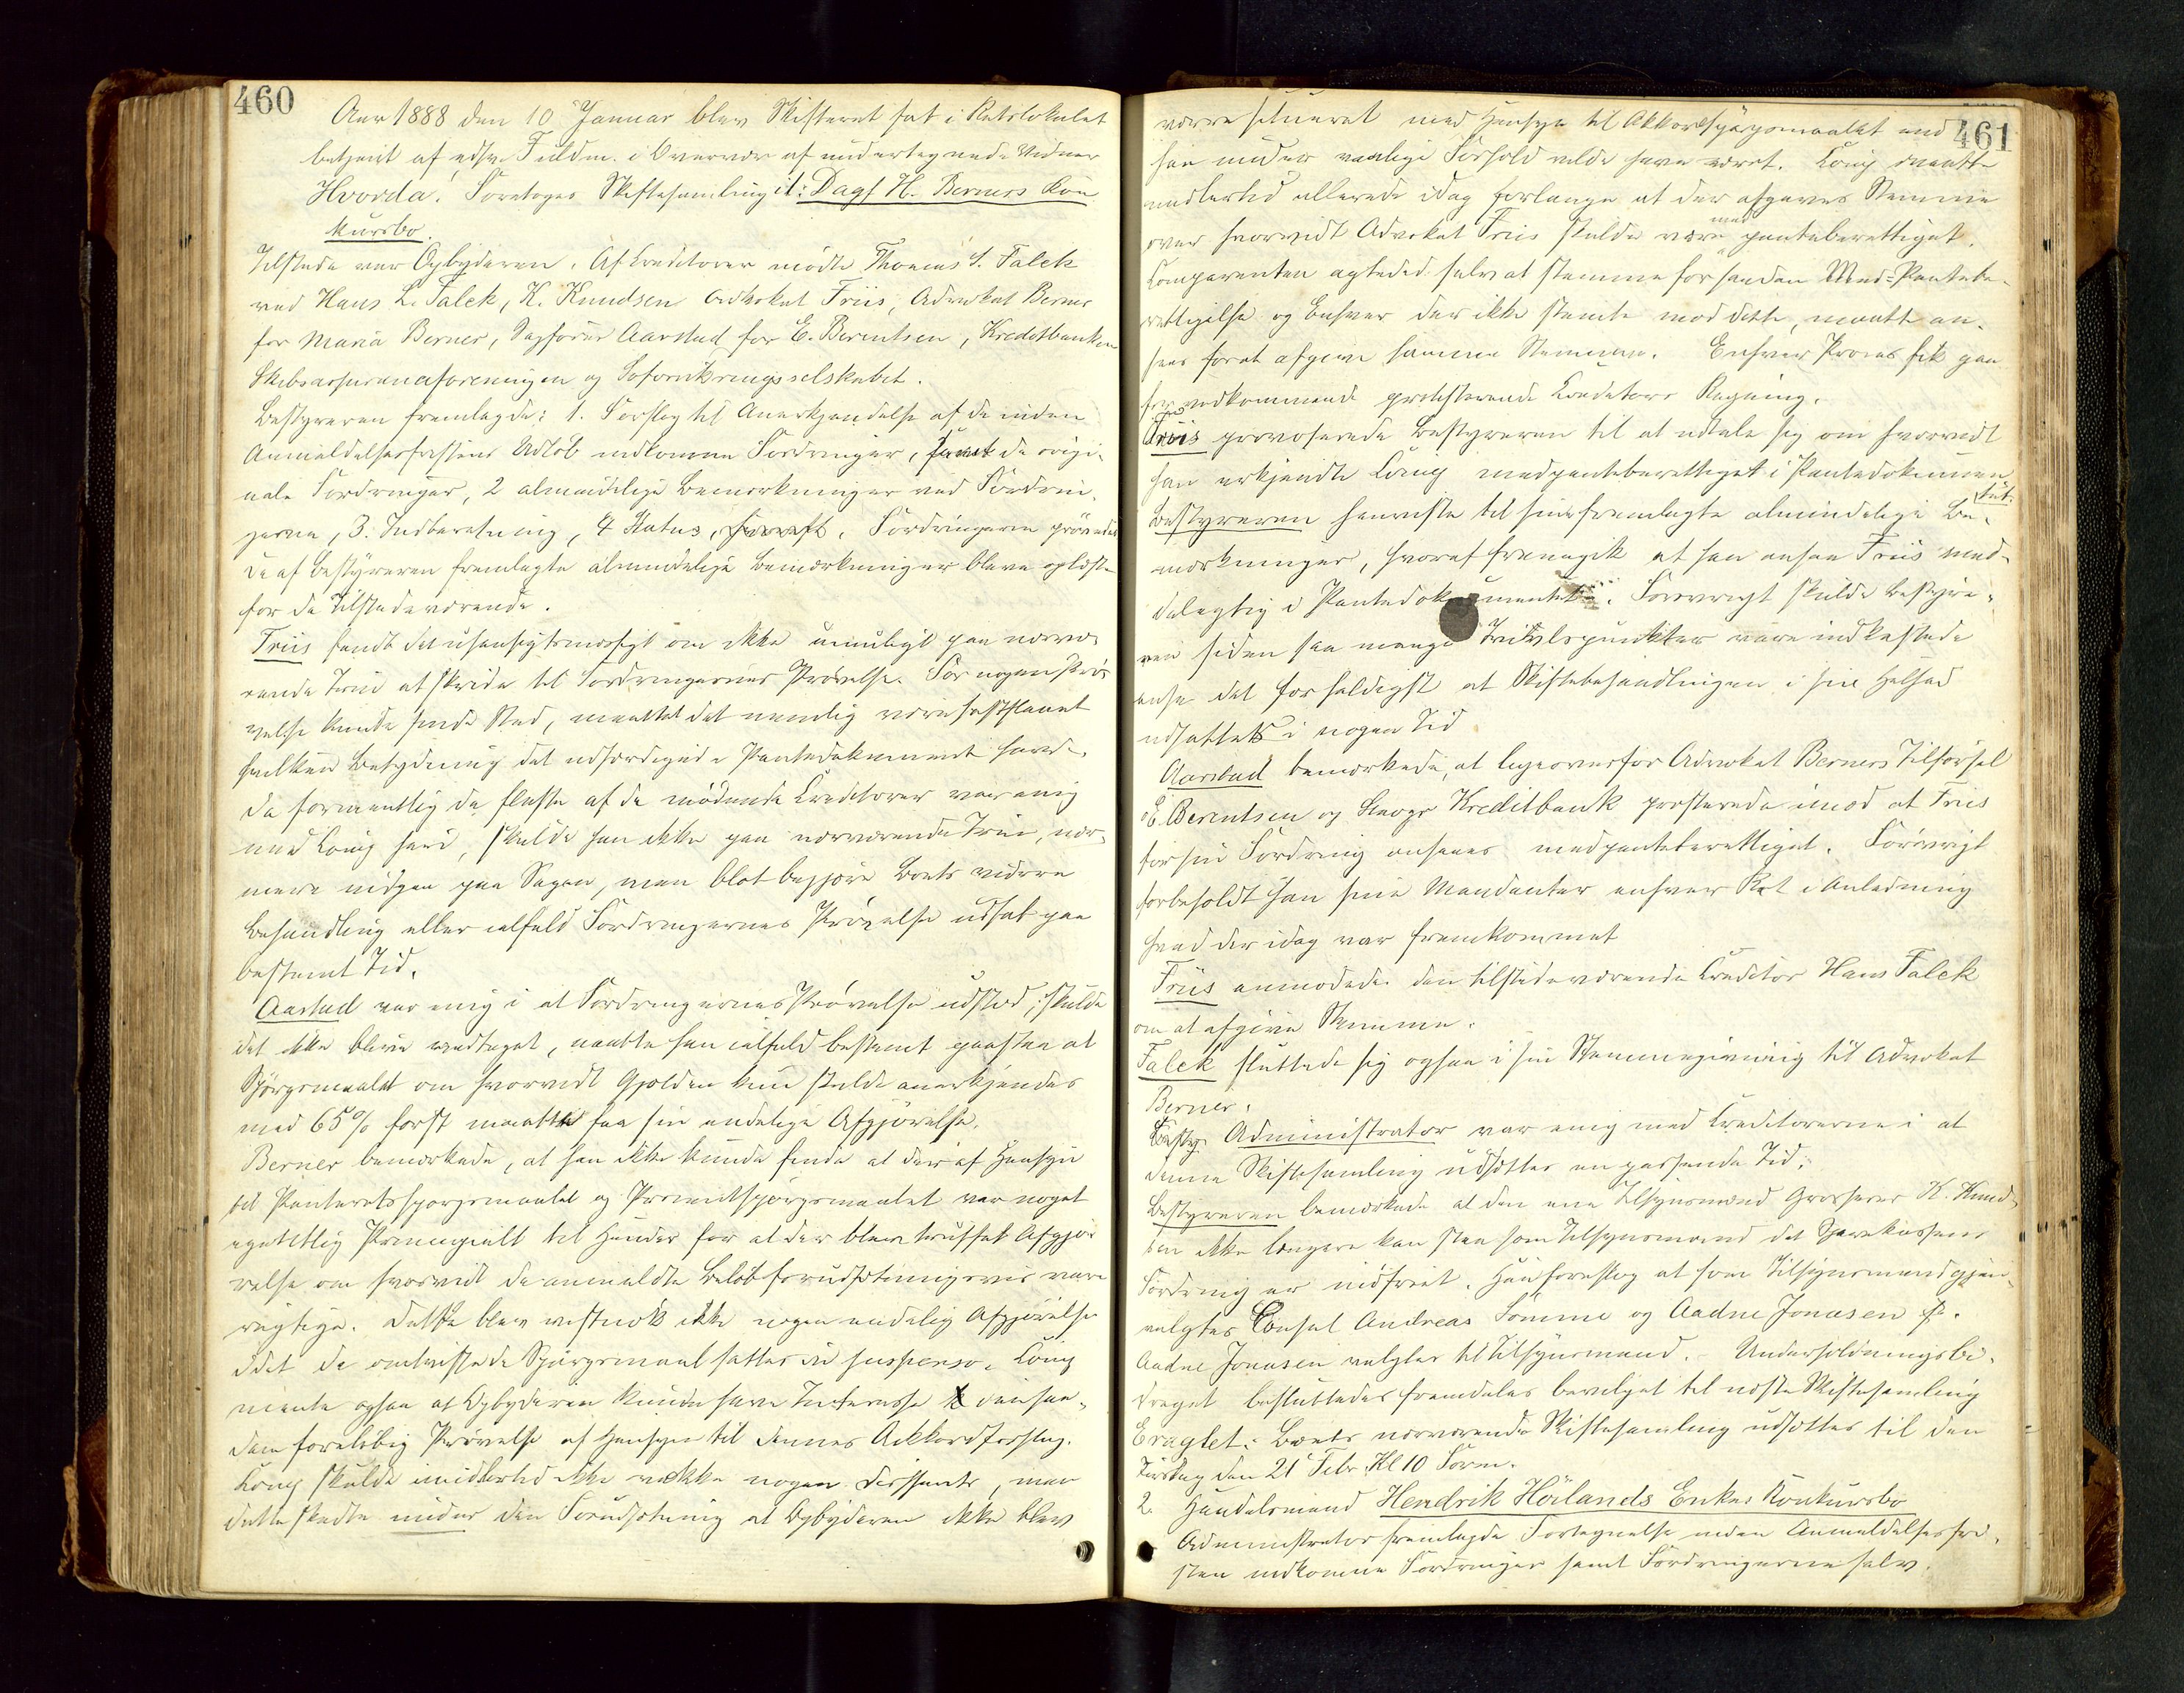 460
Aar 1888 den 10 Januar blev Skifteret sat i Retslokalet
betjent af edsv. Fuldm. i Overvær af undertegnede Vidner
Hvorda: Foretoges Skiftesamling i 1: Dagf H. Berners Kon
kursbo.
Tilstede var Opbyderen. Af Creditorer mødte Thomas S. Falck
ved Hans L. Falck, K. Knudsen Advokat Friis, Advokat Berner
for Maria Berner, Sagfører Aarstad for E. Berentsen, Kreditbanken
Skibsassuranceforeningen og Soforsikringsselskabet.
Bestyreren fremlagde: 1. Forslag til Anerkjendelse af de inden
Anmeldelsesfristens Udløb indkomne Fordringer, samt de origi-
nale Fordringer, 2 almindelige Bemærkninger ved Fordrin-
gerne, 3. Indberetning, 4 Status, . Fordringerne prøvedes
De af Bestyreren fremlagte almindelige Bemærkninger bleve oplæst
for de Tilstedeværende.
Friis fandt det uhensigtsmæssigt om ikke umuligt paa nærvæ-
rende Trin at skride til Fordringernes Prøvelse. Før nogen Prø-
velse kunde finde Sted, maatte det nemlig være fastslaaet
hvilken Betydning det udfærdigede Pantedokument havde.
Da formentlig de fleste af de mødende Creditorer var enig
med Comp heri, skulde han ikke paa nærværende Trin, nær-
mere indgaa paa Sagen, men blot begjære Boets videre
Behandling eller ialfald Fordringernes Prøvelse udsat paa
bestemt Tid.
Aastad var enig i at Fordringernes Prøvelse udstod; skulde
det ikke blive vedtaget, maatte han ialfald bestemt paastaa at
Spørgsmaalet om hvorvidt Gjælden kun skulde anerkjendes
med 65% først maatte faa sin endelige Afgjørelse.
Berner bemærkede, at han ikke kunde finde at der af Hensyn
til Panteretsspørgsmaalet og Procentspørgsmaalet var noget
egentlig Principielt til Hinder for at der blev truffet Afgjø-
relse om hvorvidt de anmeldte Beløb forudsætningsvis vare
rigtige. Dette blev vistnok ikke nogen endelig Afgjørelse
idet de omtvistede Spørgsmaal sattes in suspenso. Comp
mente ogsaa at Opbyderen kunde have Interesse i en saa-
dan foreløbig Prøvelse af Hensyn til dennes Akkordforslag.
Comp skulde imidlertid ikke vække nogen Dissents, men
dette skedte under den Forudsætning at Opbyderen ikke blev
461
værre situeret med Hensyn til Akkordspørgsmaalet end
han under vanlige Forhold vilde have været. Comp maatte
imidlertid allerede idag forlange at der afgaves Stemme
over hvorvidt Advokat Friis skulde være med panteberettiget.
Comparenten agtede selv at stemme for saadan Med-Pantebe-
rettigelse og Enhver der ikke stemte mod dette, maatte an-
sees for at afgive samme Stemme. Enhver Proces fik gaa
for vedkommende protesterende Creditors Regning.
Friis provoserede Bestyreren til at udtale sig om hvorvidt
han erkjendte Comp medpanteberettiget i Pantedokumen
tet.
Bestyreren henviste til sine fremlagte almindelige Be-
mærkninger, hvoraf fremgik at han ansaa Friis med-
delagtig i Pantedokumentet. Forøvrigt skulde Bestyre-
ren siden saa mange Tvivlspunkter være indkastede
anse det for heldigst at Skiftebehandlingen i sin Helhed
udsattes i nogen Tid
Aarstad bemærkede, at ligeoverfor Advokat Berners Tilførsel
E. Berentsen og Stavgr Kreditbank protesterede imod at Friis
for sin Fordring ansees medpanteberettiget. Forøvrigt
forbeholdt han sine Mandanter enhver Ret i Anledning
hvad der idag var fremkommet
Friis anmodede den tilstedeværende Creditor Hans Falck
om at afgive Stemme.
Falck sluttede sig ogsaa i sin Stemmegivning til Advokat
Berner.
Besty. Administrator var enig med Creditorerne i at
denne Skiftesamling udsættes en passende Tid.
Bestyreren bemærkede at den ene Tilsynsmand Grosserer K. Knud-
sen ikke længere kan staa som Tilsynsmand da Sparekassens
Fordring er indfriet. Han foreslog at som Tilsynsmand gjen-
valgtes Consul Andreas Sømme og Aadne Jonasen .
Aadne Jonasen valgtes til Tilsynsmand. – Underholdningsbi-
draget besluttedes fremdeles bevilget til næste Skiftesamling
Eragtet: Boets nærværende Skiftesamling udsættes til den
Tirsdag den 21 Febr. Kl 10 Form.
2. Handelsmand Hendrik Hölands Enkes Konkursbo
Administrator fremlagde Fortegnelse inden Anmeldelsesfri-
sten indkomne Fordringer samt Fordringerne selv.